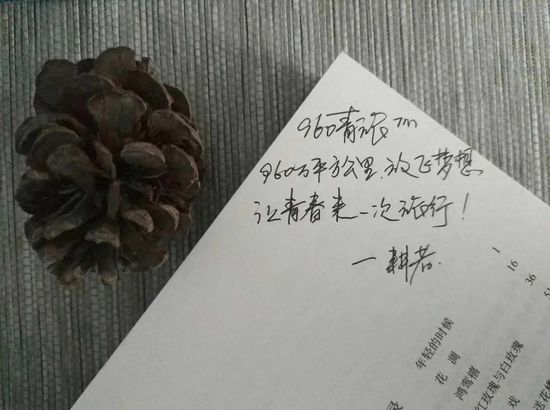 960青旅TM
960万平方公里,放飞梦想
让青春来一次旅行!
一耕者.
年轻的时候 1
花凋 16
鸿鸾禧 36
红玫瑰与白玫瑰
录